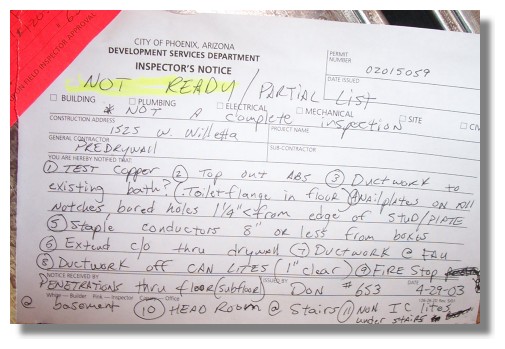 ON FIELD INSPECTOR APPROVAL
CITY OF PHOENIX, ARIZONA
DEVELOPMENT SERVICES DEPARTMENT
INSPECTOR'S NOTICE
PERMIT NUMBER 02015059
DATE ISSUED
NOT READY / PARTIAL LIST
BUILDING PLUMBING ELECTRICAL MECHANICAL SITE
* NOT A complete inspection
CONSTRUCTION ADDRESS 1525 W. Willetta PROJECT NAME
GENERAL CONTRACTOR PREDRYWALL SUB-CONTRACTOR
YOU ARE HEREBY NOTIFIED THAT:
① TEST Copper ② Top out ABS ③ Ductwork to
existing bath? (Toilet flange in floor) ④ Nailplates on all
notches, bored holes 1 1/4" < from edge of stud/PLATE
⑤ Staple conductors 8" or less from boxes
⑥ Extend c/o thru drywall ⑦ Ductwork @ FAU
⑧ Ductwork off CAN LITES (1" clear) ⑨ FIRE Stop
NOTICE RECEIVED BY ISSUED BY DATE
PENETRATIONS thru floor (subfloor) DON #653 4-29-03
White — Builder Pink — Inspector Canary — Office
@ basement ⑩ HEAD ROOM @ Stairs ⑪ NON IC lites
under stairs to